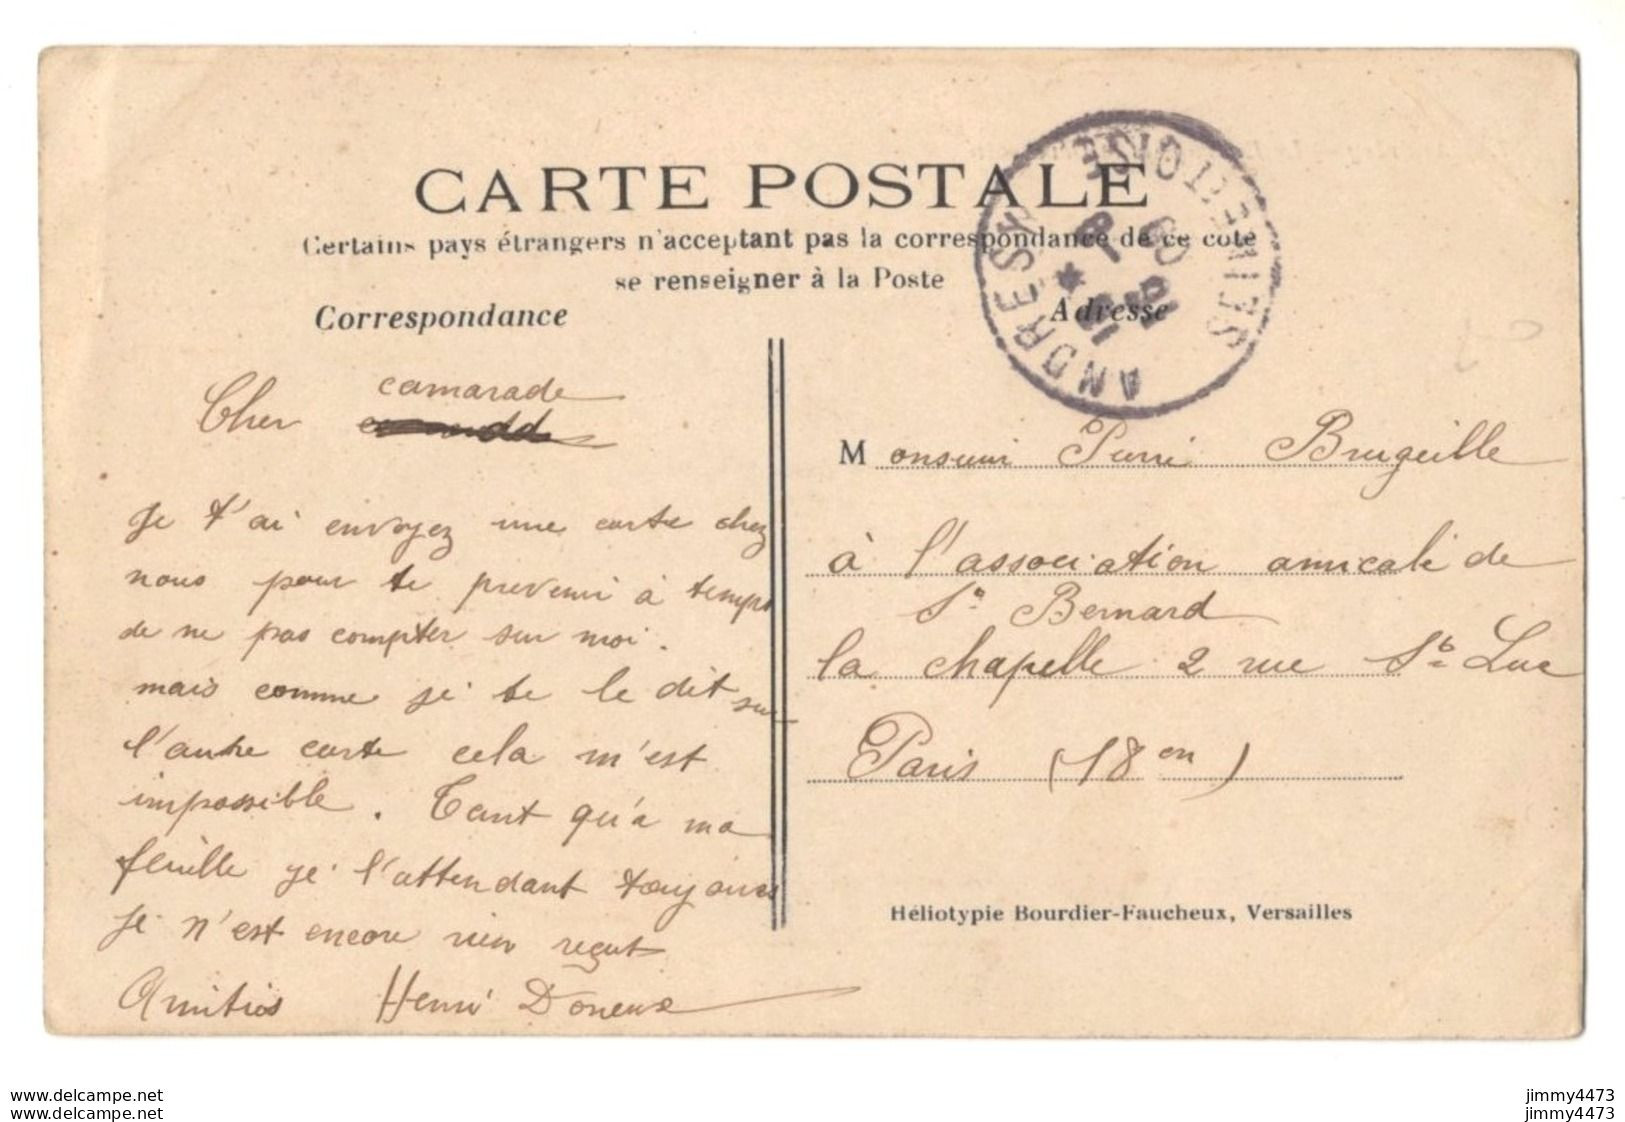 CARTE POSTALE
Certains pays étrangers n'acceptant pas la correspondance de ce coté
se renseigner à la Poste
Correspondance
Cher camarade
Je t'ai envoyez une carte chez
nous pour te prevenir à temps
de ne pas compter sur moi.
mais comme je te le dit sur
l'autre carte cela m'est
impossible. Tant qu'a ma
feuille je l'attendant toujours
je n'est encore rien reçut
Amitiés Henri
Adresse
ANDRESY
SEINE-ET-OISE
Monsieur Pierre Brugeille
à l'association amicale de
St Bernard
la chapelle 2 rue St Luc
Paris (18 en)
Héliotypie Bourdier-Faucheux, Versailles
delcampe.net
delcampe.net
jimmy4473
jimmy4473